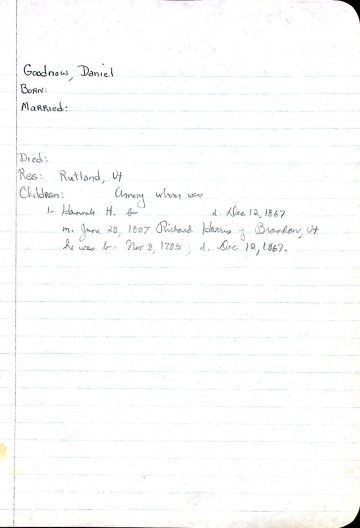 Goodnow, Daniel
Born:
Married:
Died:
Res: Rutland, Vt
Children: Among whom was
1. Hannah H. b d. Dec 12, 1867
m. June 28, 1807 Richard Harris of Brandon, Vt
he was b. Nov 3, 1783; d. Dec 12, 1867.